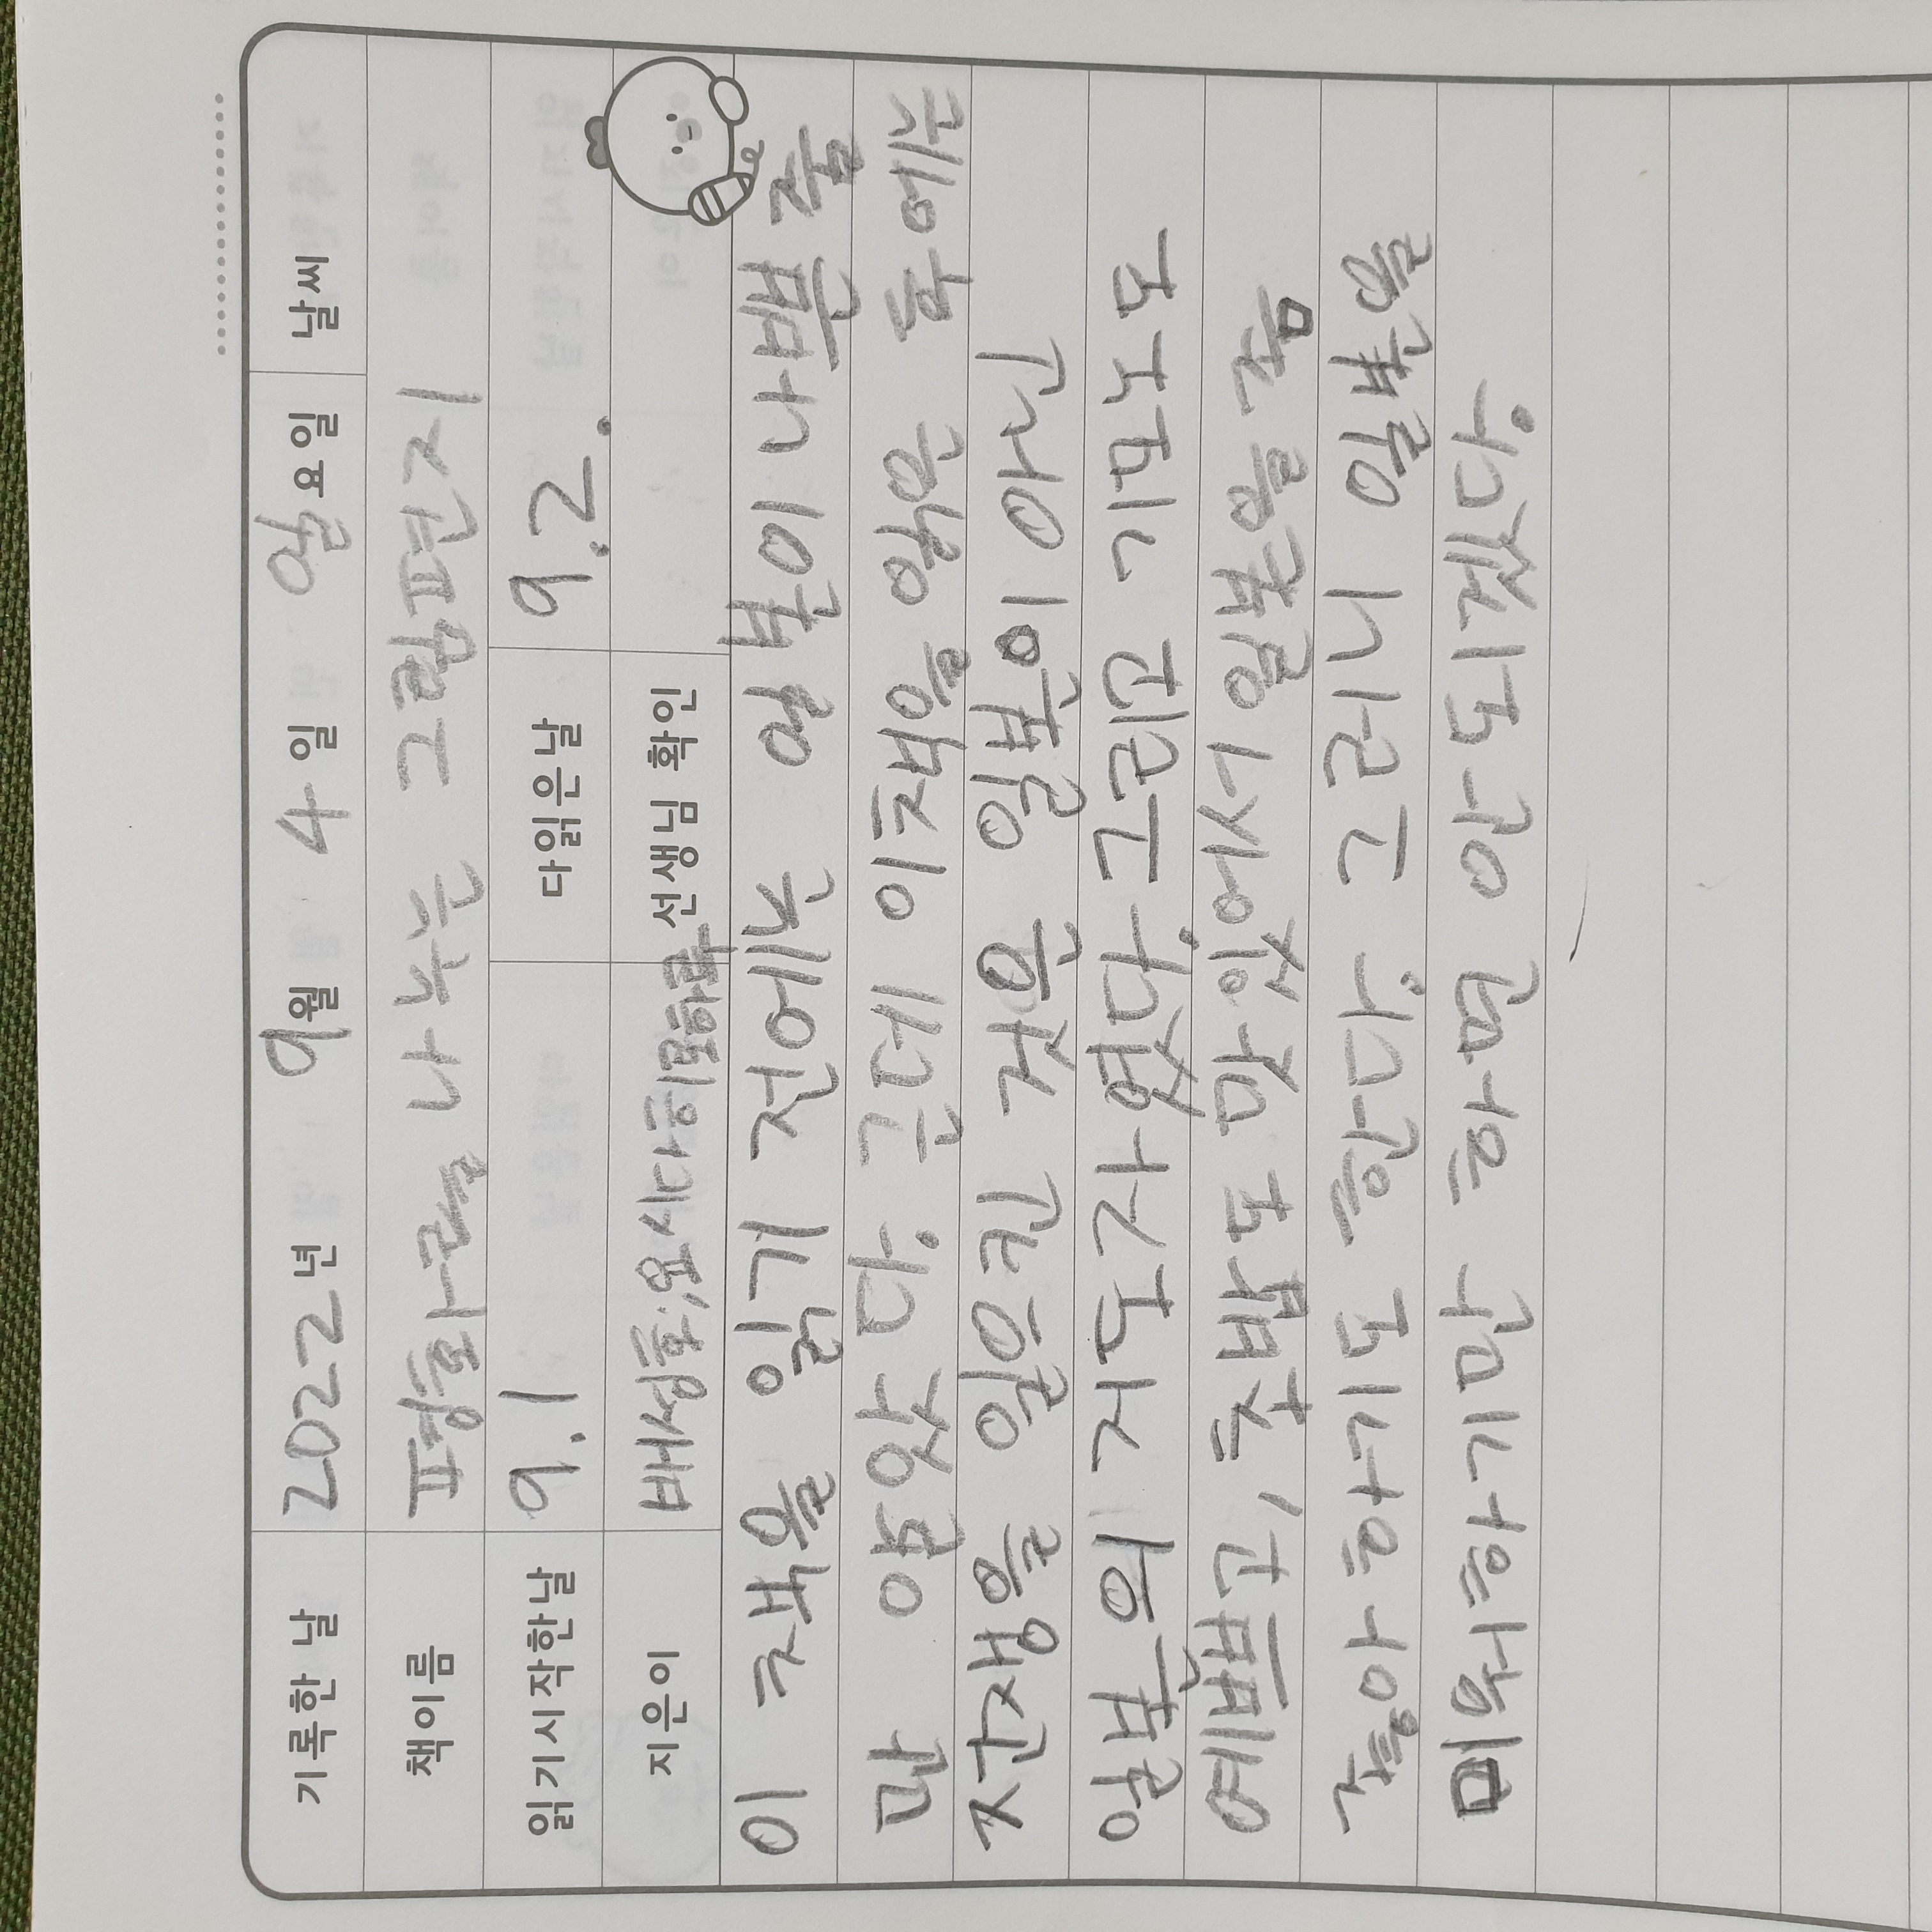 기록한 날 2022년 9월 4일 일요일 날씨
책이름 평화를 나누는 그림편지
읽기시작한날 9.1 다읽은날 9.2.
지은이 배성호;요시다히로하루 선생님 확인
이 책을 읽기 전에는 일본이 나쁜 줄
만 알았다. 근데 이책을 읽은 후에는
전쟁을 일으킨 것은 일본이 아닌
일본의 지도자였다. 그리고 기모노도
예쁘고, 초밥도 맛있어서 일본을 좀
좋아하기도 한다. 그러니 일본을
미워하기만 하면 안되겠다.